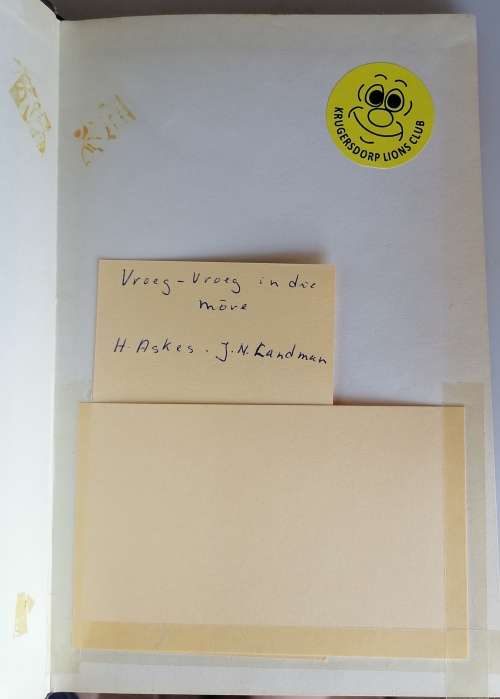 KRUGERSDORP LIONS CLUB
Vroeg-Vroeg in die
môre
H. Askes. J.N. Landman